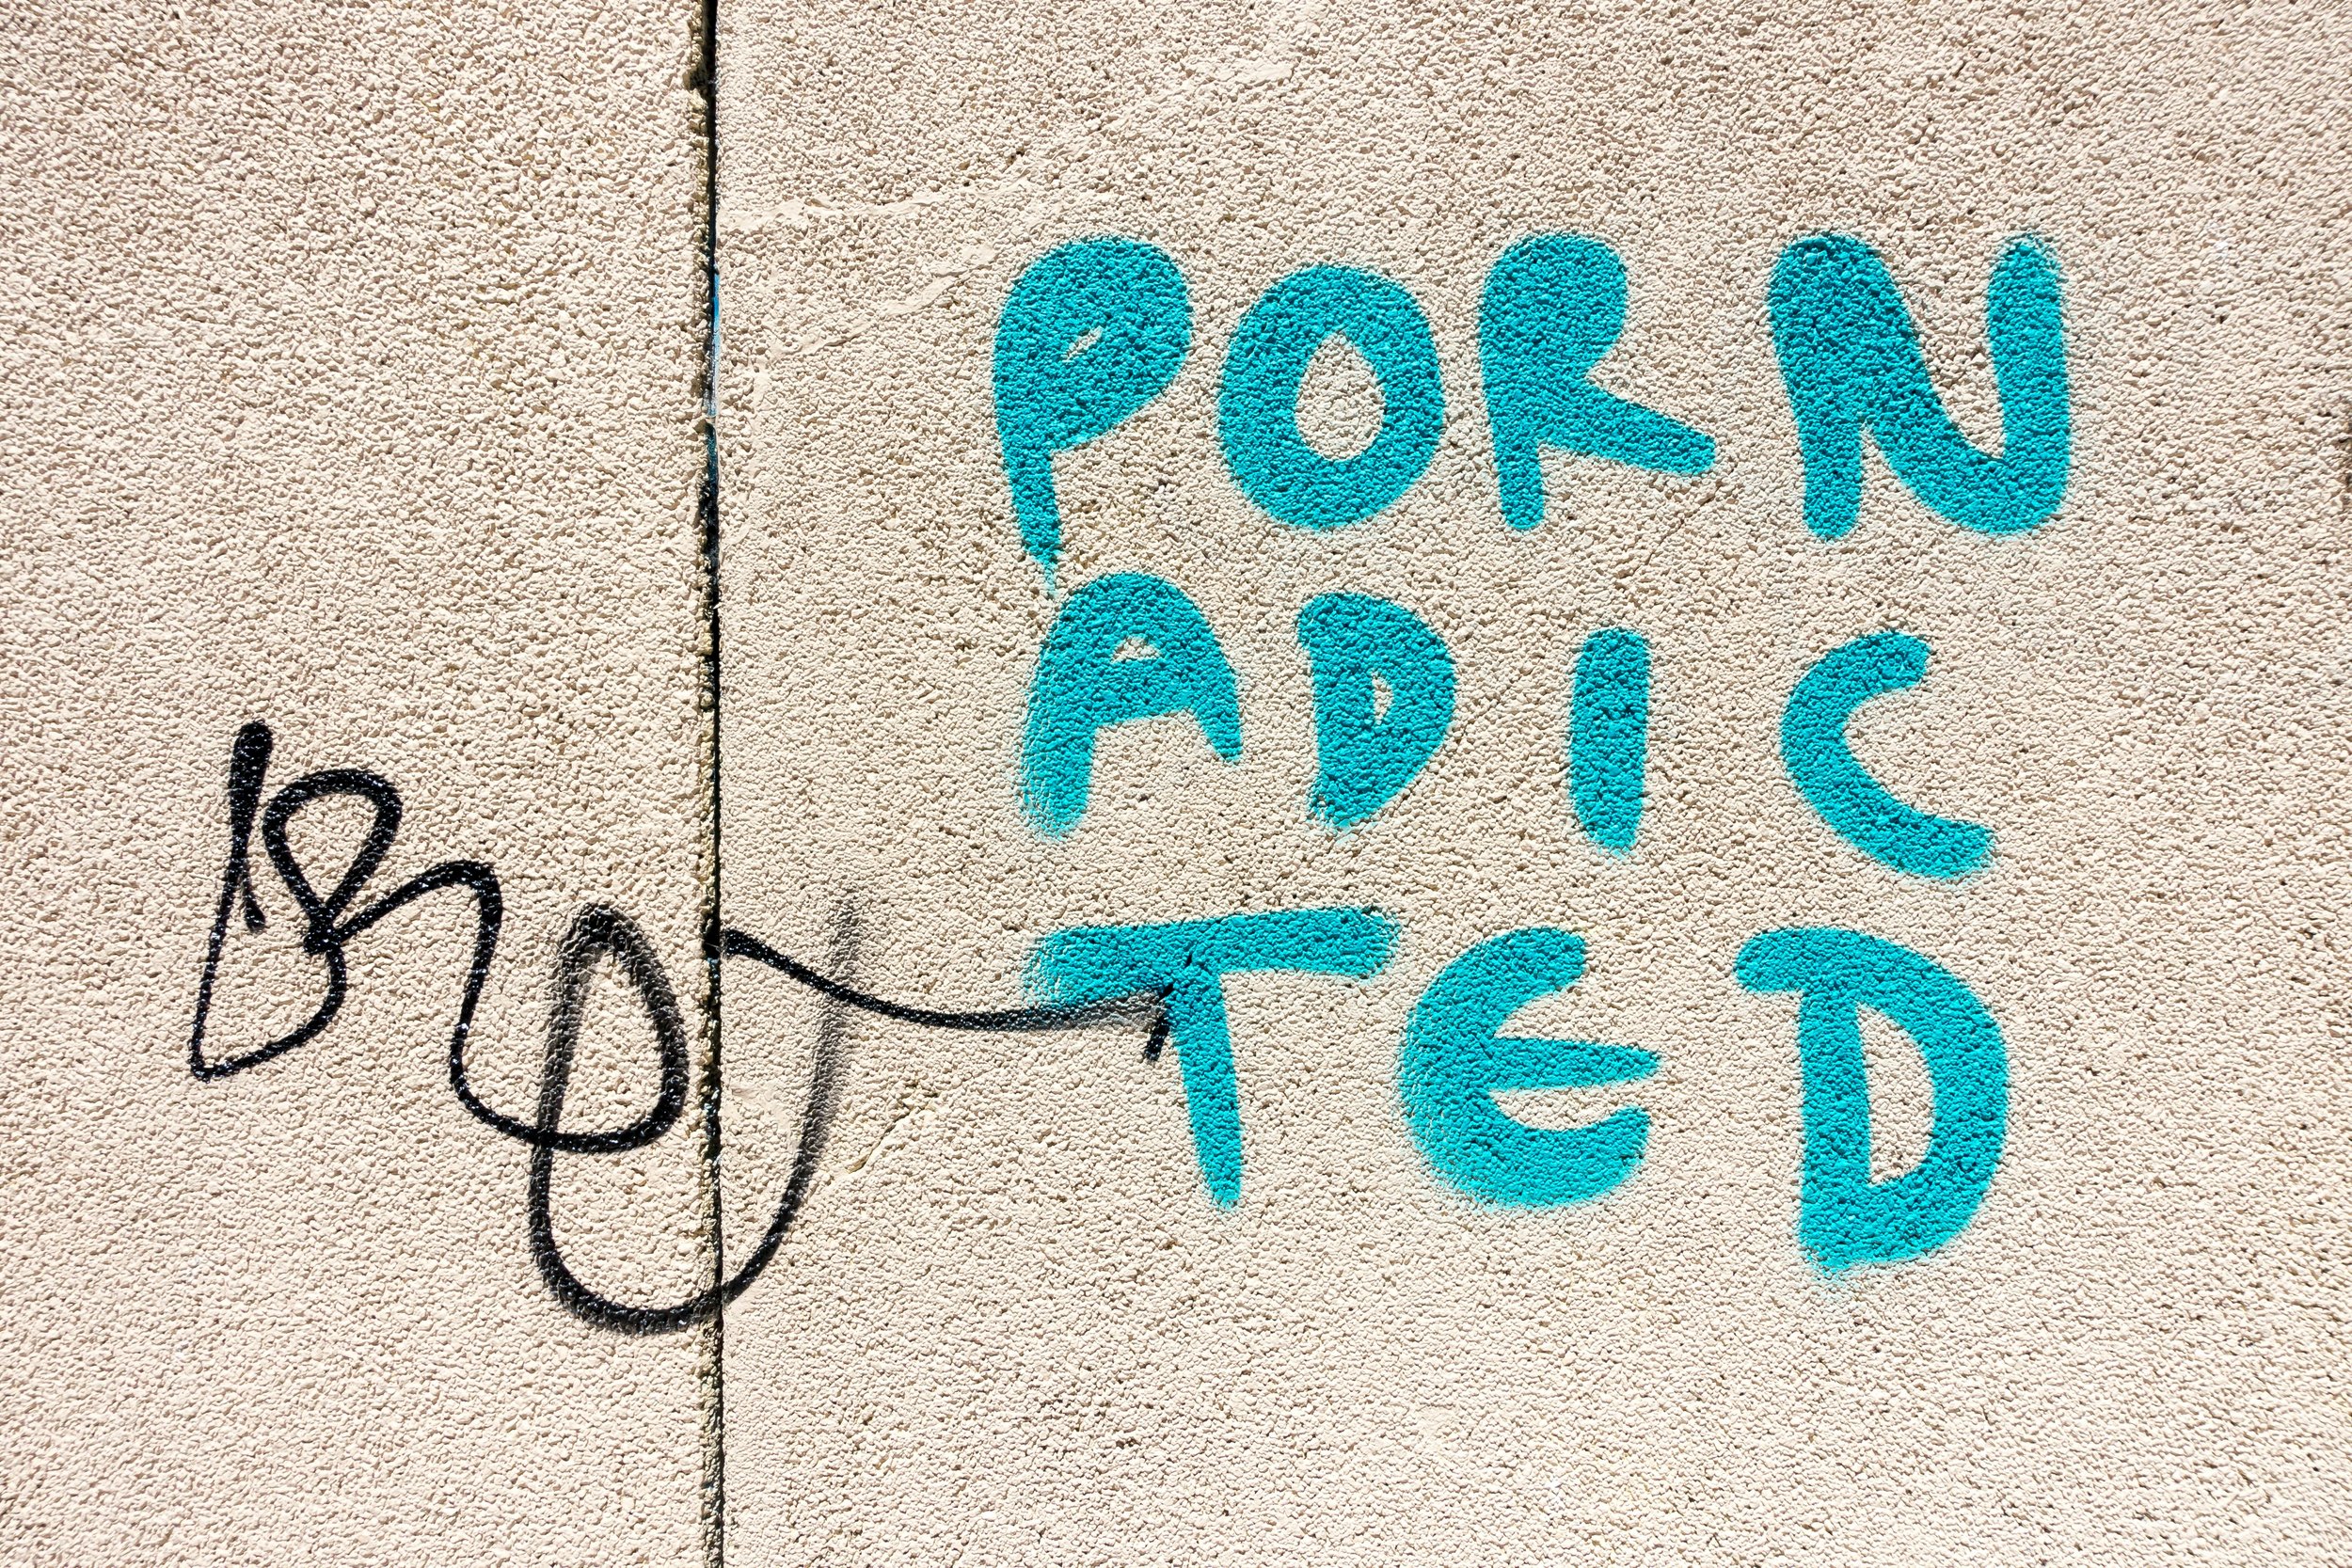 PORN
ADIC
TED